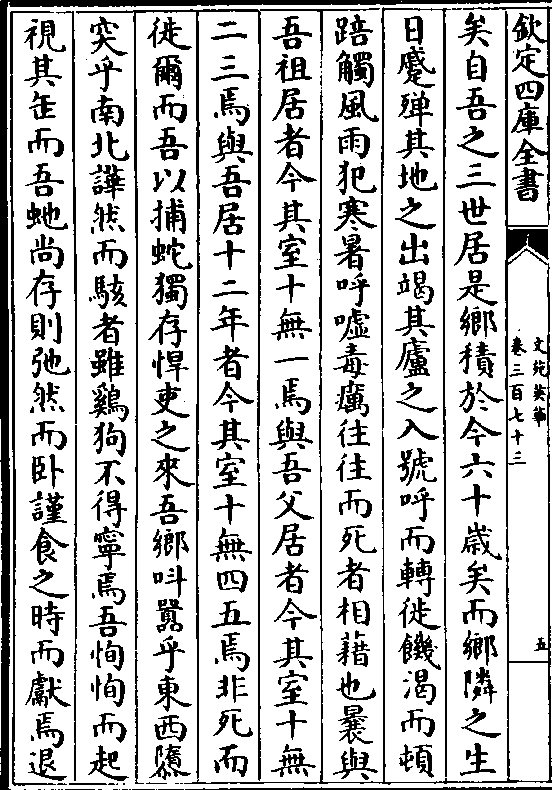 欽定四庫全書
文苑英華
卷三百七十三
五
矣自吾之三世居是鄉積於今六十歲矣而鄉隣之生
日蹙殫其地之出竭其廬之入號呼而轉徙饑渴而頓
踣觸風雨犯寒暑呼噓毒癘往往而死者相藉也曩與
吾祖居者今其室十無一焉與吾父居者今其室十無
二三焉與吾居十二年者今其室十無四五焉非死而
徙爾而吾以捕蛇獨存悍吏之來吾鄉叫囂乎東西隳
突乎南北譁然而駭者雖鷄狗不得寧焉吾恂恂而起
視其缶而吾虵尚存則弛然而卧謹食之時而獻焉退